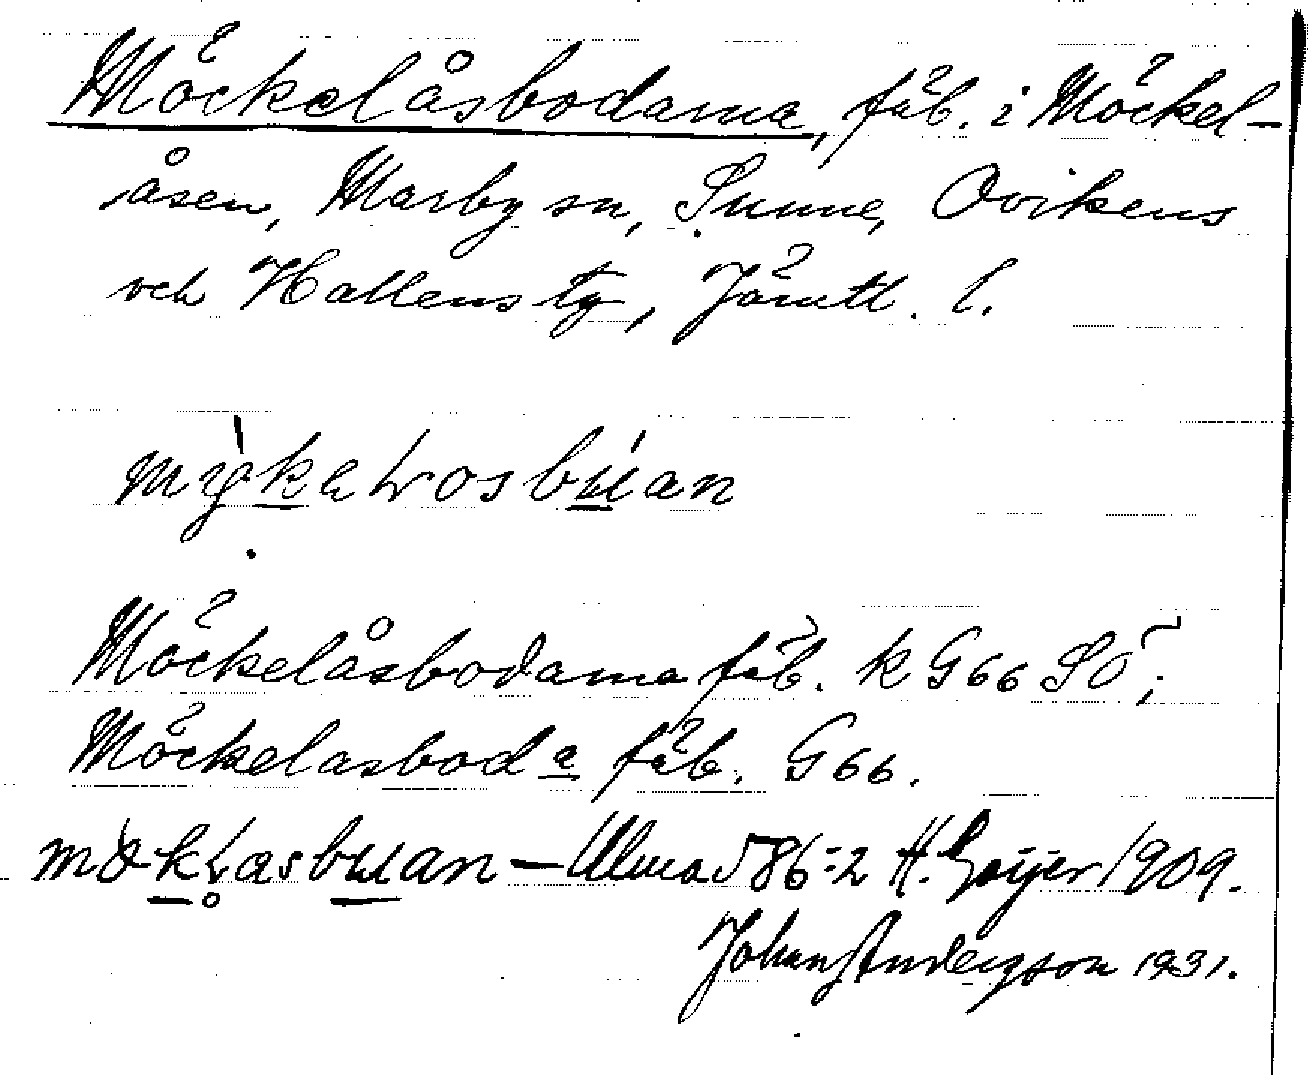 Möckelåsbodarna, fäb. i Möckel-
åsen, Marby sn, Sunne, Ovikens
och Hallens tg, Jämtl. l.
Möckelåsbodarna fäb. k G66 SÖ;
Möckelasboda fäb. G66.
Ulma 586:2 H. Geijer 1909.
Johan Anderson 1931.